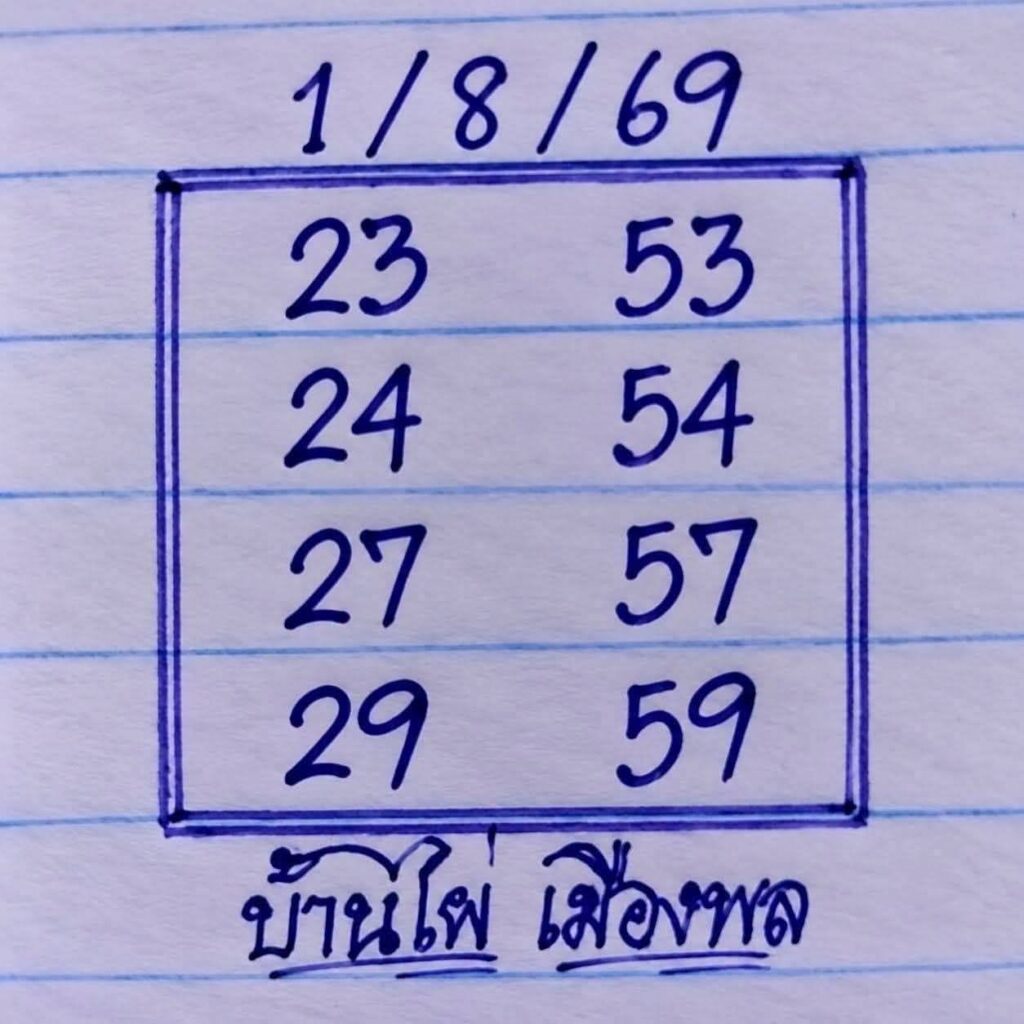 1/8/69
23 53
24 54
27 57
29 59
บ้านไผ่ เมืองพล